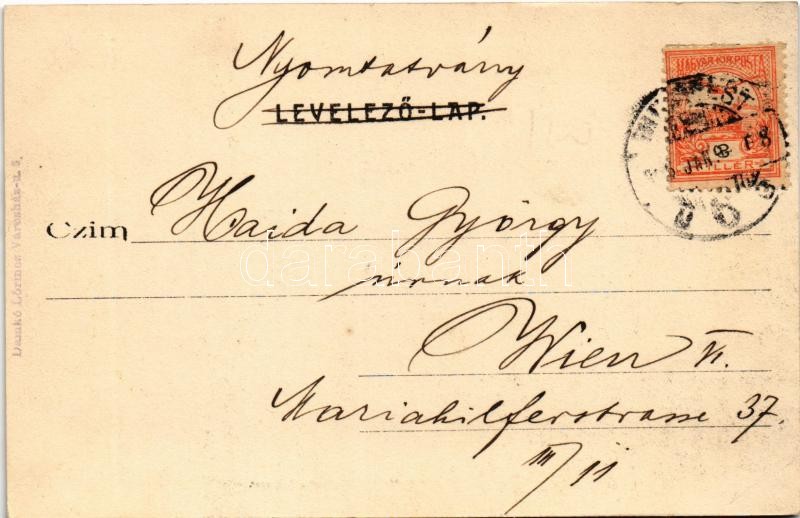 Nyomtatvány
LEVELEZŐ-LAP.
MAGYAR KIR. POSTA
Czim Hajda György
úrnak
Wien VI.
Mariahilferstrasse 37.
III/11
Damkó Lőrincz Városház-u. 5.
darabanth